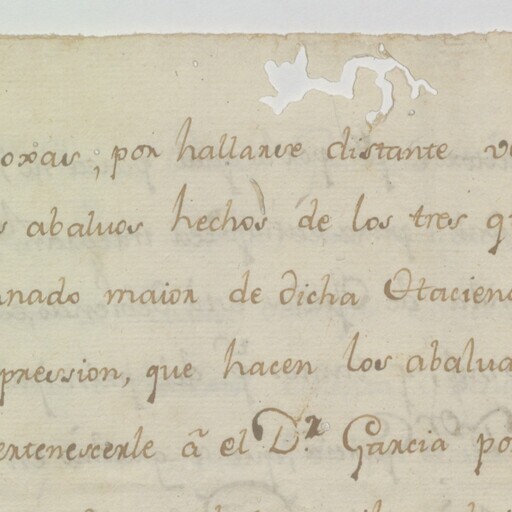 oxas, por hallarse distante
abaluos hechos de los tres
nado maior de dicha Hacien
pression, que hacen los abalua
ertenescerle â el D.r Garcia po